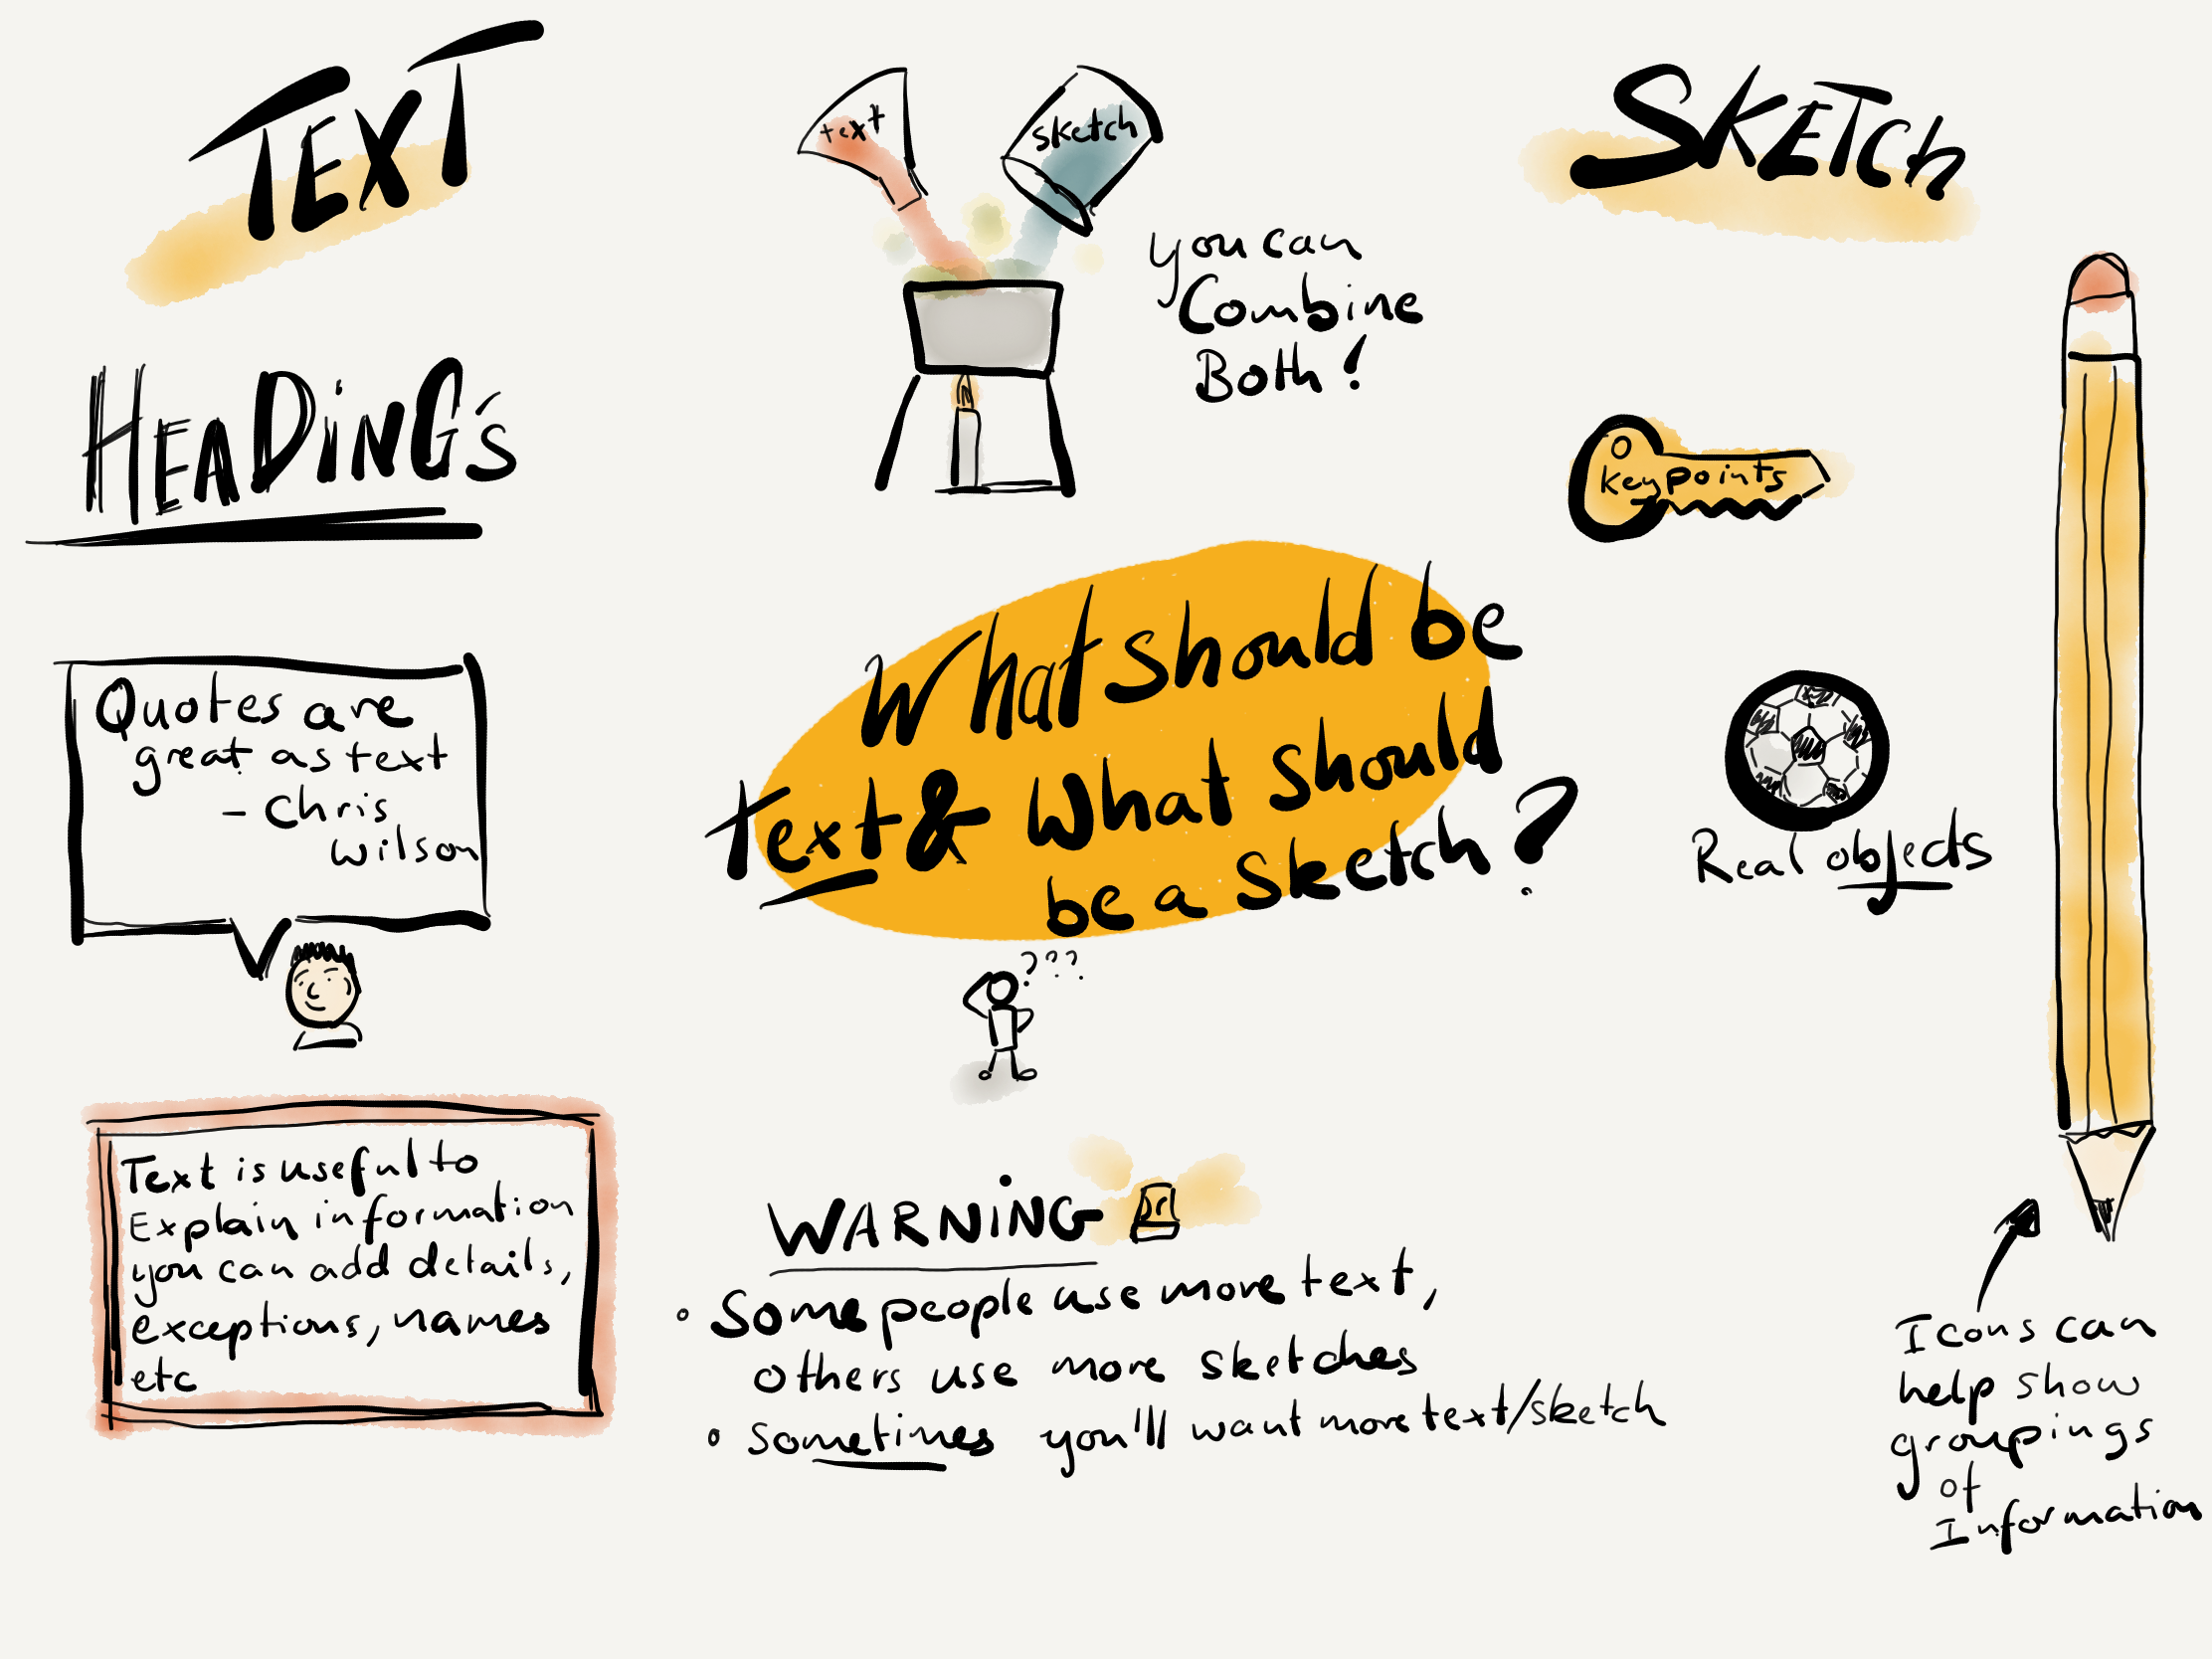 TEXT
HEADiNG's
Quotes are
great as text
- Chris
Wilson
Text is useful to
Explain information
you can add details,
exceptions, names
etc
text
sketch
you can
Combine
Both!
What should be
text & What should
be a sketch?
???
WARNiNG
• Some people use more text,
others use more sketches
• sometimes you'll want more text/sketch
SKETCh
key points
Real objects
Icons can
help show
groupings
of
Information